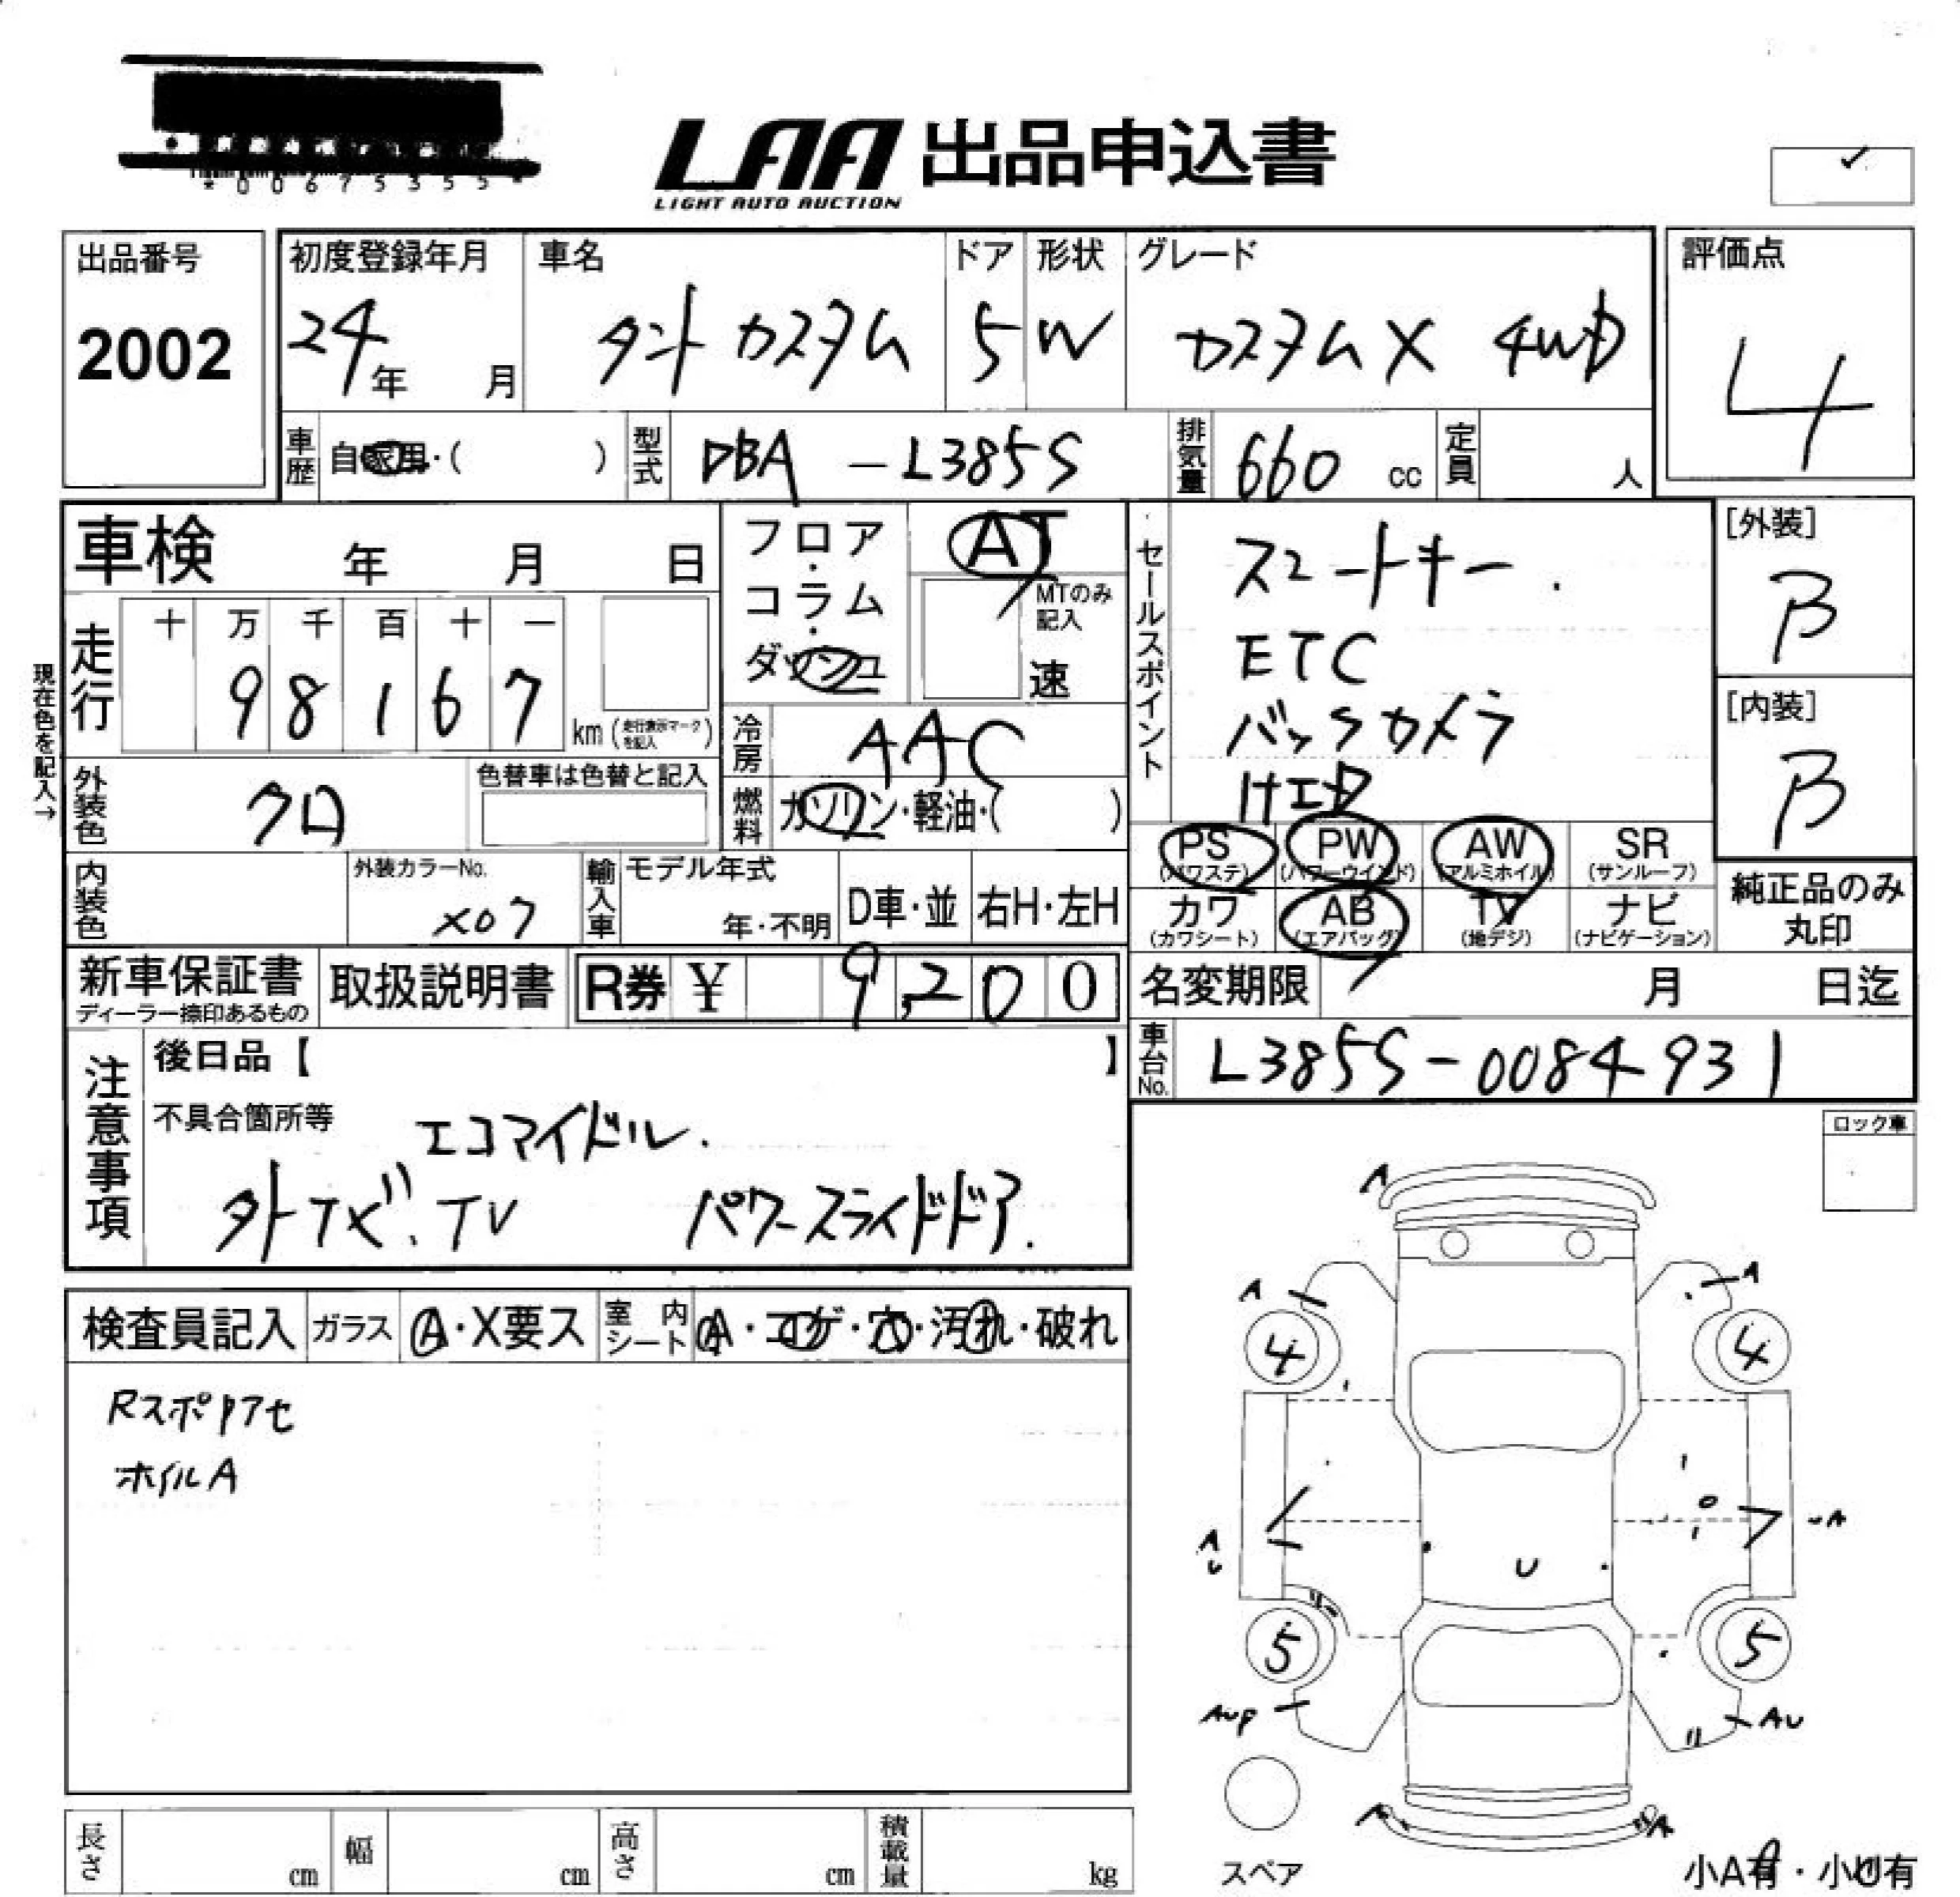 *00675355*
LAA 出品申込書
LIGHT AUTO AUCTION
出品番号
2002
初度登録年月
24年 月
車名
タント カスタム
ドア
5
形状
W
グレード
カスタムX 4WD
評価点
4
車歴 自家用・( )
型式 DBA -L385S
排気量 660 cc
定員 人
車検 年 月 日
現在色を記入→
走行
十 万 千 百 十 一
9 8 1 6 7
km(走行表示マークを記入)
フロア・コラム・ダッシュ
AT
MTのみ記入
速
冷房 AAC
燃料 ガソリン・軽油・( )
セールスポイント
スマートキー.
ETC
バックカメラ
HID
[外装]
B
[内装]
B
外装色 クロ
色替車は色替と記入
内装色
外装カラーNo.
X07
輸入車
モデル年式
年・不明
D車・並
右H・左H
PS (パワステ)
PW (パワーウインド)
AW (アルミホイル)
SR (サンルーフ)
カワ (カワシート)
AB (エアバッグ)
TV (地デジ)
ナビ (ナビゲーション)
純正品のみ丸印
新車保証書
ディーラー捺印あるもの
取扱説明書
R券 ¥ 9,200
名変期限 月 日迄
車台No. L385S-0084931
注意事項
後日品【 】
不具合箇所等
エコアイドル.
外ナビ.TV パワースライドドア.
ロック車
検査員記入
ガラス A・X要ス
室内シート A・コゲ・穴・汚れ・破れ
Rスポリアセ
ホイルA
A
A
A
4
4
A
U
U
UA
5
5
AUP
AU
A
A
スペア
小A有・小U有
長さ cm
幅 cm
高さ cm
積載量 kg